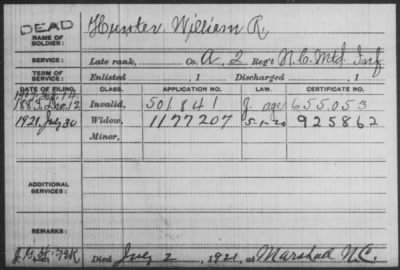 DEAD
NAME OF SOLDIER: Hunter, William R.
SERVICE: Late rank, Co. A, 2 Reg't N.C. Mtd. Inf
TERM OF SERVICE: Enlisted , 1 Discharged , 1
DATE OF FILING. CLASS. APPLICATION NO. LAW. CERTIFICATE NO.
1883, Dec. 12 Invalid, 501841 J. age 655.053
1921, July 30 Widow, 1177207 5-1-20 925862
Minor,
ADDITIONAL SERVICES:
REMARKS:
Died July 2, 1921, at Marshall N.C.